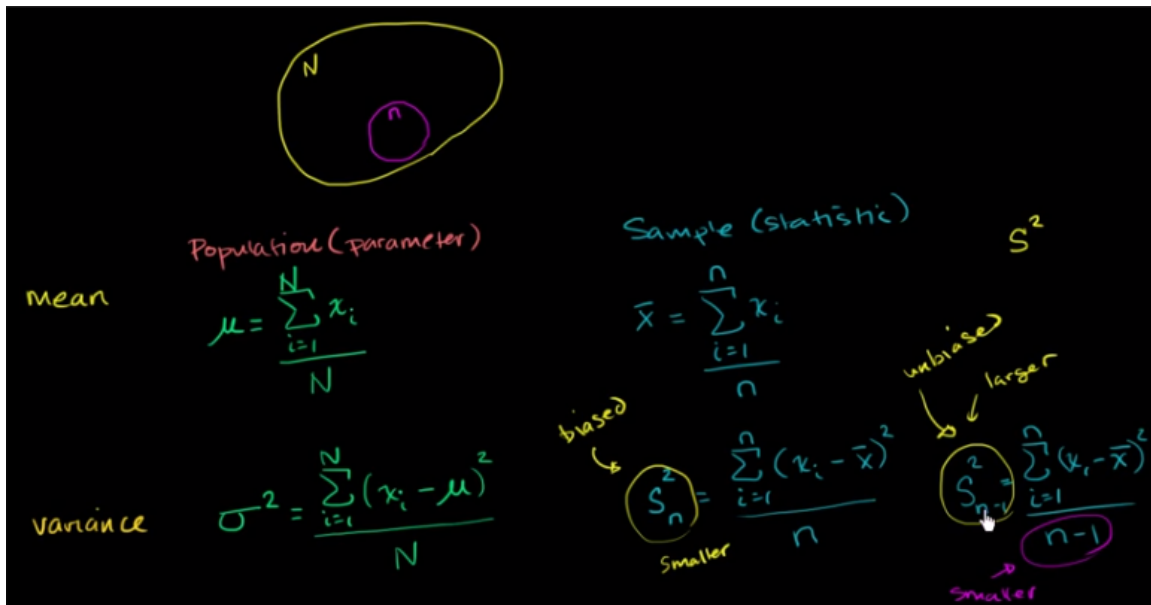 N
n
Population (parameter)
Sample (statistic)
S²
mean
μ = \frac{\sum_{i=1}^{N} x_i}{N}
x̄ = \frac{\sum_{i=1}^{n} x_i}{n}
unbiased
larger
biased
variance
σ² = \frac{\sum_{i=1}^{N} (x_i - μ)^2}{N}
S_n^2 = \frac{\sum_{i=1}^{n} (x_i - x̄)^2}{n}
S_{n-1}^2 = \frac{\sum_{i=1}^{n} (x_i - x̄)^2}{n-1}
smaller
smaller